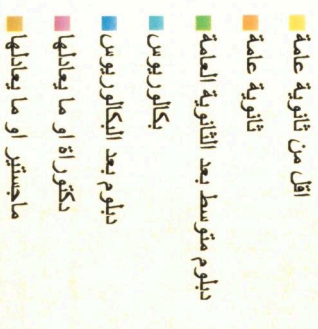 اقل من ثانوية عامة
ثانوية عامة
دبلوم متوسط بعد الثانوية العامة
بكالوريوس
دبلوم بعد البكالوريوس
دكتوراة او ما يعادلها
ماجستير او ما يعادلها